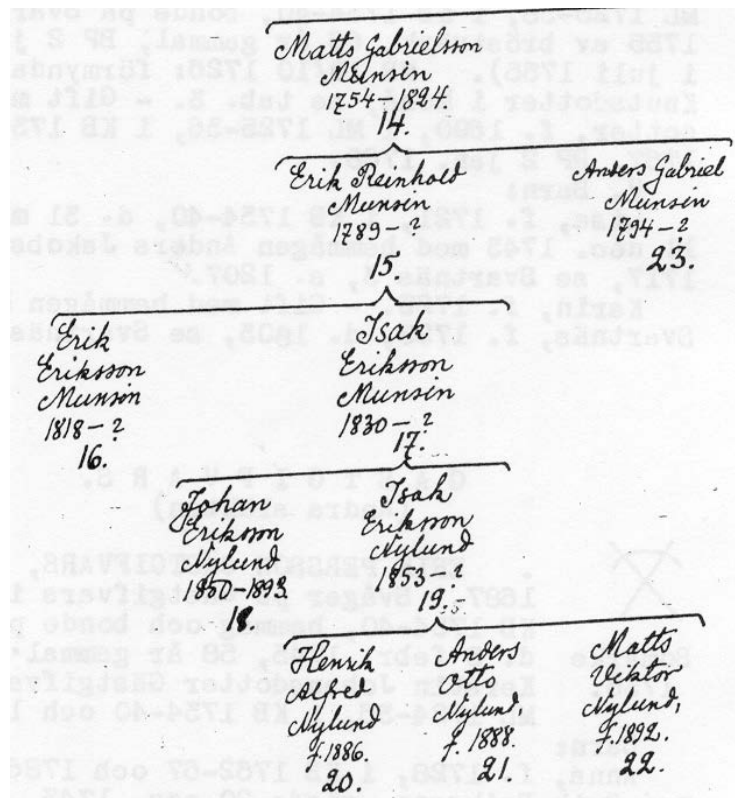 Matts Gabrielsson
Munsin
1754-1824.
14.
Erik Reinhold
Munsin
1789-?
15.
Anders Gabriel
Munsin
1794-?
23.
Erik
Eriksson
Munsin
1818-?
16.
Isak
Eriksson
Munsin
1830-?
17.
Johan
Eriksson
Nylund
1850-1893.
18.
Isak
Eriksson
Nylund
1853-?
19.
Henrik
Alfred
Nylund
f.1886.
20.
Anders
Otto
Nylund,
f. 1888.
21.
Matts
Viktor,
Nylund,
f.1892.
22.